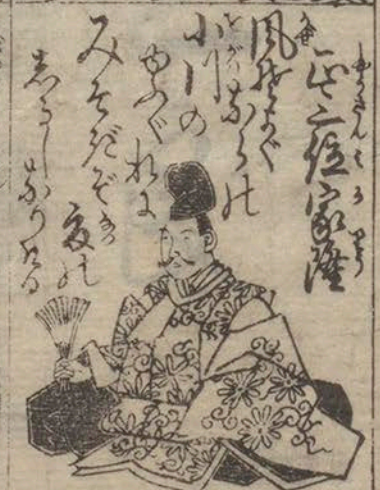 正三位家隆
風そよぐ
ならの
小川の
ゆふぐれは
みそぎぞ
夏の
しるしなりける